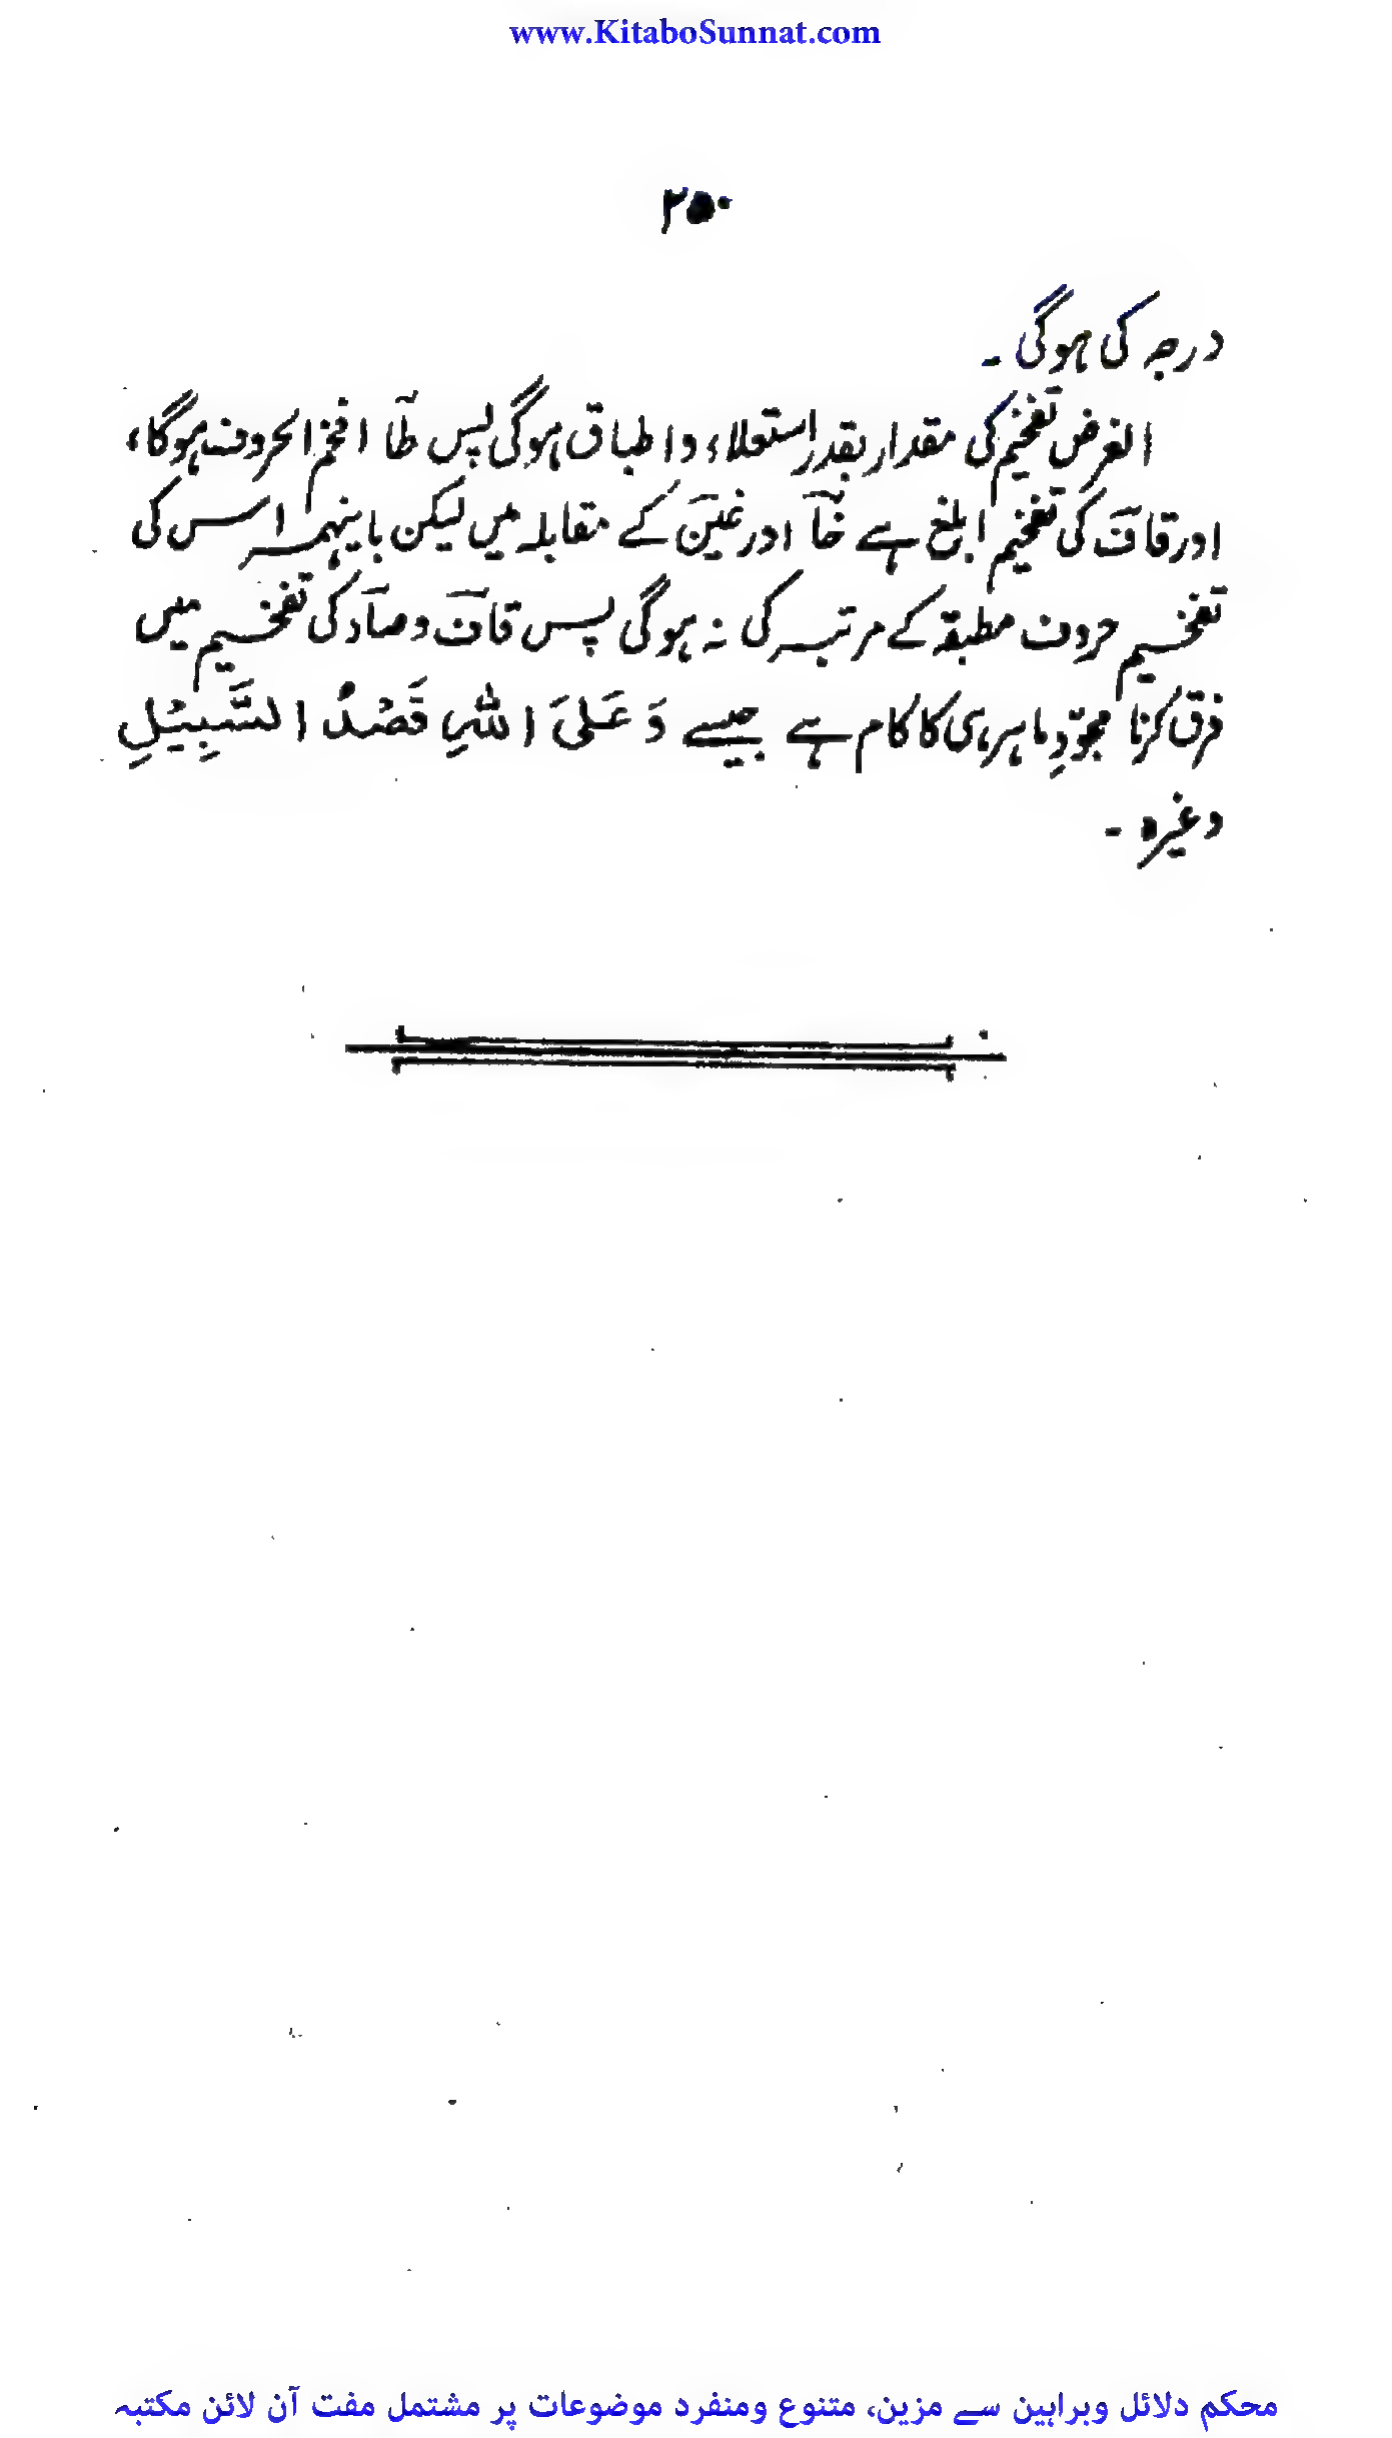 www.KitaboSunnat.com
۲۵۰
درجہ کی ہوگی ۔
الغرض تفخیم کی مقدار بقدر استعلاء و اطباق ہوگی پس طآ افخم الحروف ہوگا،
اور قافؔ کی تفخیم ابلغ ہے خآ اور غینؔ کے مقابلہ میں لیکن باینہمہ اس کی
تفخیم حروف مطبقہ کے مرتبہ کی نہ ہوگی پس قافؔ و صآد کی تفخیم میں
فرق کرنا مجوّدِ ماہر ہی کا کام ہے جیسے وَ عَلَی اللّٰهِ قَصْدُ السَّبِیْلِ
وغیرہ ۔
محکم دلائل وبراہین سے مزین، متنوع ومنفرد موضوعات پر مشتمل مفت آن لائن مکتبہ